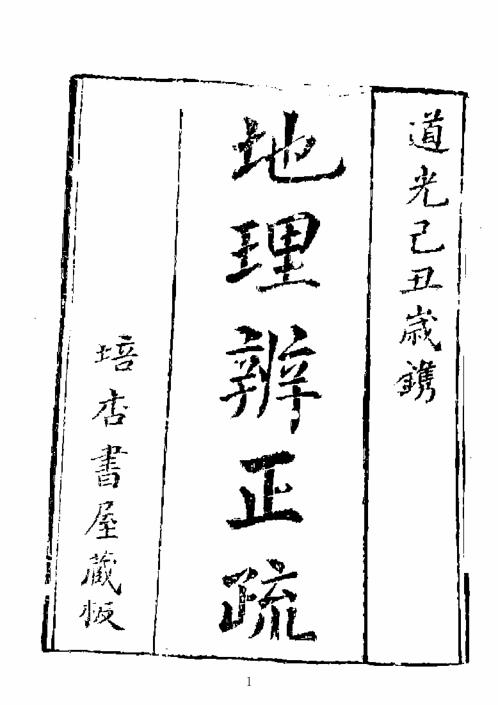 道光己丑歲鐫
地理辨正疏
培杏書屋藏板
1